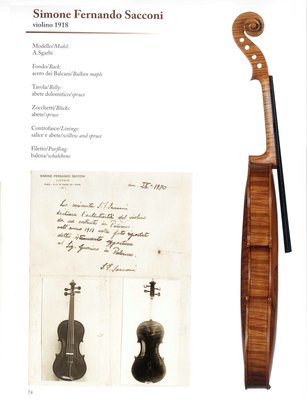 Simone Fernando Sacconi
violino 1918
Modello/Model:
A.Sgarbi
Fondo/Back:
acero dei Balcani/Balkan maple
Tavola/Belly:
abete dolomitico/spruce
Zocchetti/Blocks:
abete/spruce
Controfasce/Linings:
salice e abete/willow and spruce
Filetto/Purfling:
balena/whalebone
SIMONE FERNANDO SACCONI
LIUTAIO
Roma IX - 1920
Io sottoscritto S.F. Sacconi
dichiaro l'autenticità del violino
da me costruito in Palermo
nell'anno 1918
dello strumento
al Sig. in Palermo.
S.F. Sacconi
74